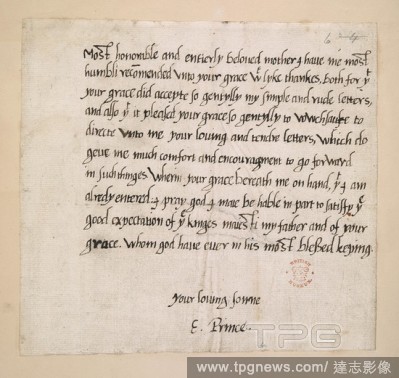 Most honorable and entierly beloved mother I have me most
humbli recomended unto your grace wt lyke thankes, both for yt
your grace did accepte so gentylly my simple and rude letters,
and also yt it pleased your grace so gentylly to vowchsaufe to
directe unto me your loving and tendre letters, which do
geve me much comfort and encouragment to go forward
in such thinges wherin your grace beareth me on hand, yt I am
alredy entered. I pray god I maie be hable in part to satisfy ye
good expectation of ye kinges maiesti my father and of your
grace. whom god have ever in his most blessed keping
Your loving sonne
E. Prince.
TPG
www.tpgnews.com / 達志影像